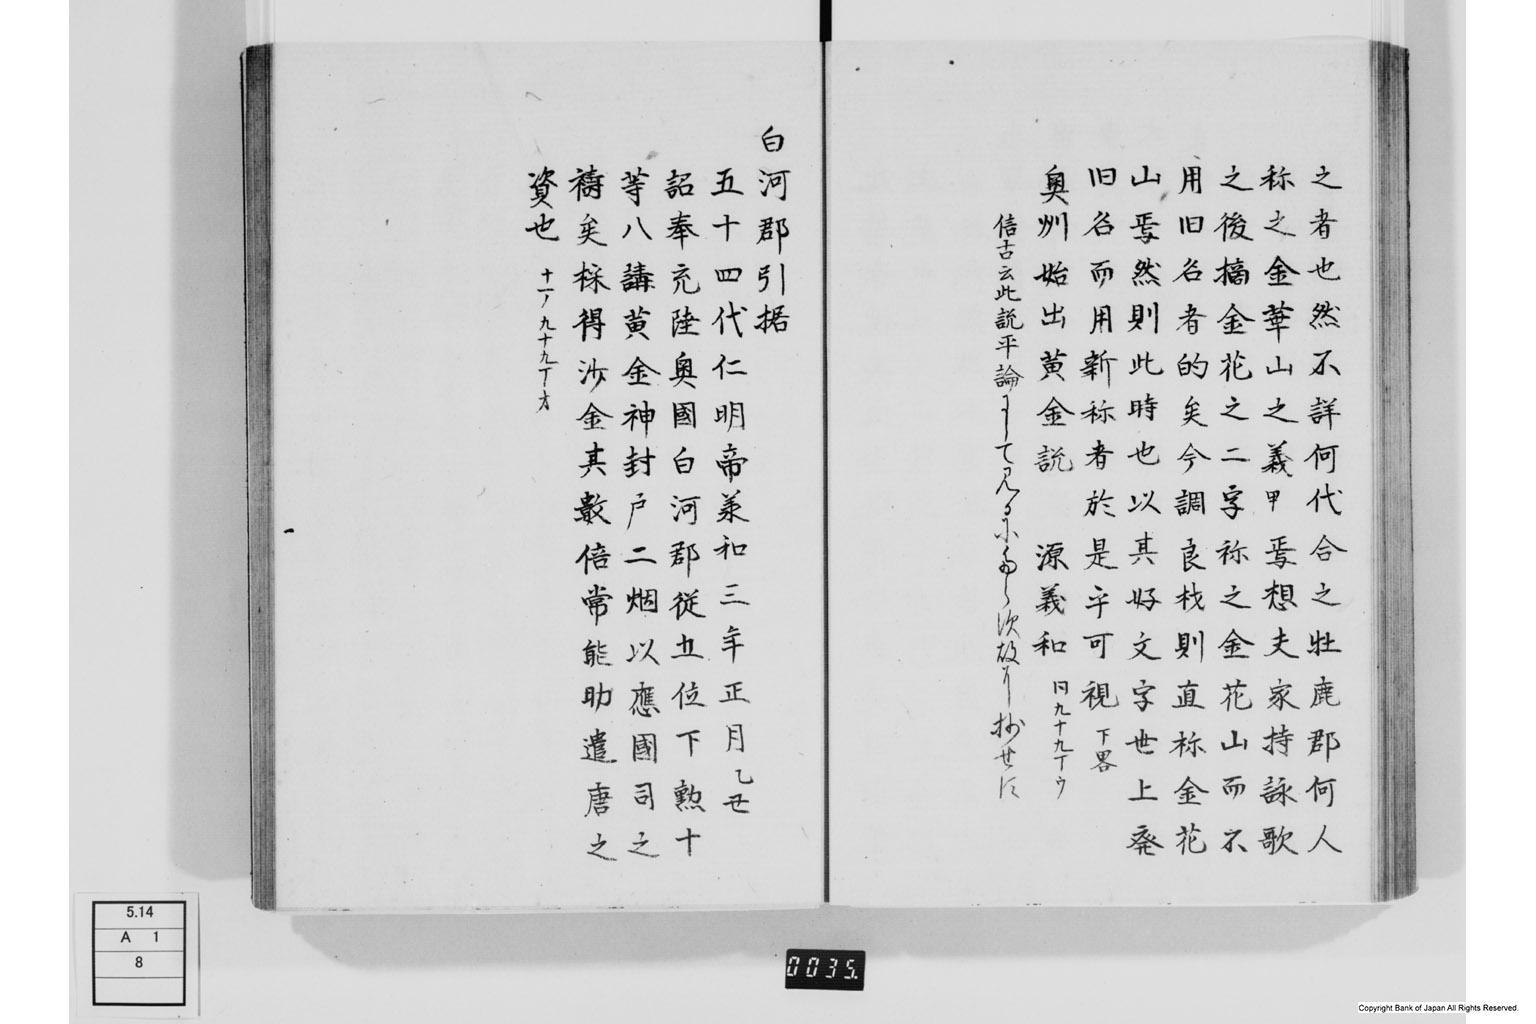 之者也然不詳何代合之牡鹿郡何人
称之金華山之義甲焉想夫家持詠歌
之後摘金花之二字称之金花山而不
用旧名者的矣今調良材則直称金花
山焉然則此時也以其好文字世上発
旧名而用新称者於是乎可視 下畧
奥州始出黄金説 源義和 同九十九丁ウ
信古云此説平論にして見るに
白河郡引据
五十四代仁明帝羕和三年正月乙丑
詔奉充陸奥國白河郡従五位下勲十
等八講黄金神封戸二烟以應國司之
禱矣採得沙金其数倍常能助遣唐之
資也 十一ノ九十九丁才
5.14
A 1
8
0035.
Copyright Bank of Japan All Rights Reserved.